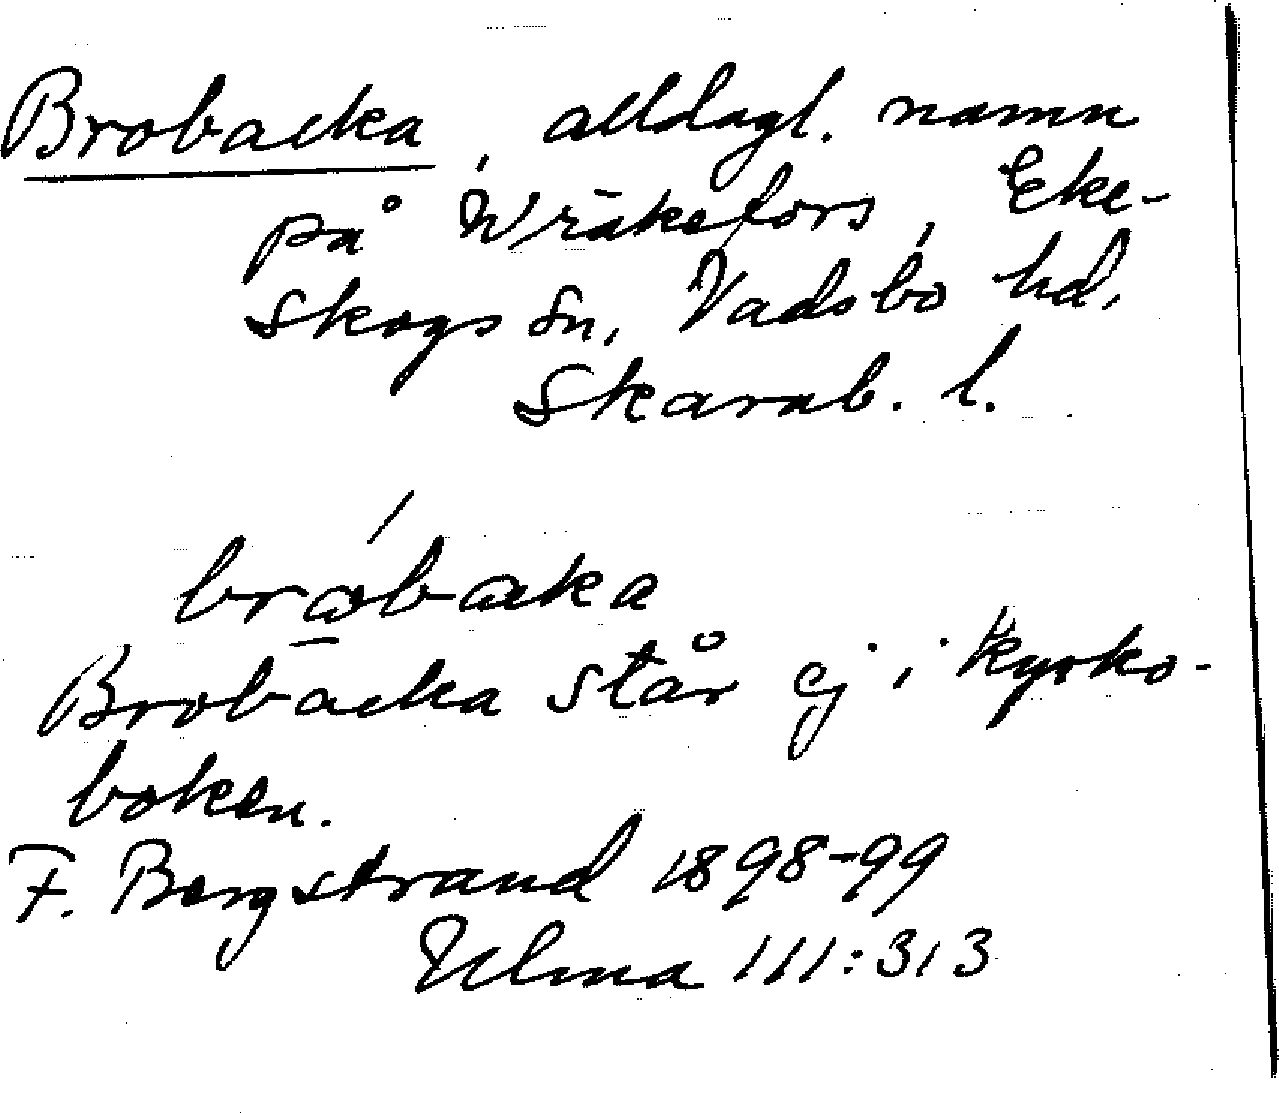 Brobacka, alldagl. namn
på Wräkefors, Eke-
skogs sn, Vadsbo hd,
Skarab. l.
brobaka
Brobacka står ej i kyrko-
boken.
F. Bergstrand 1898-99
Ulma 111:313